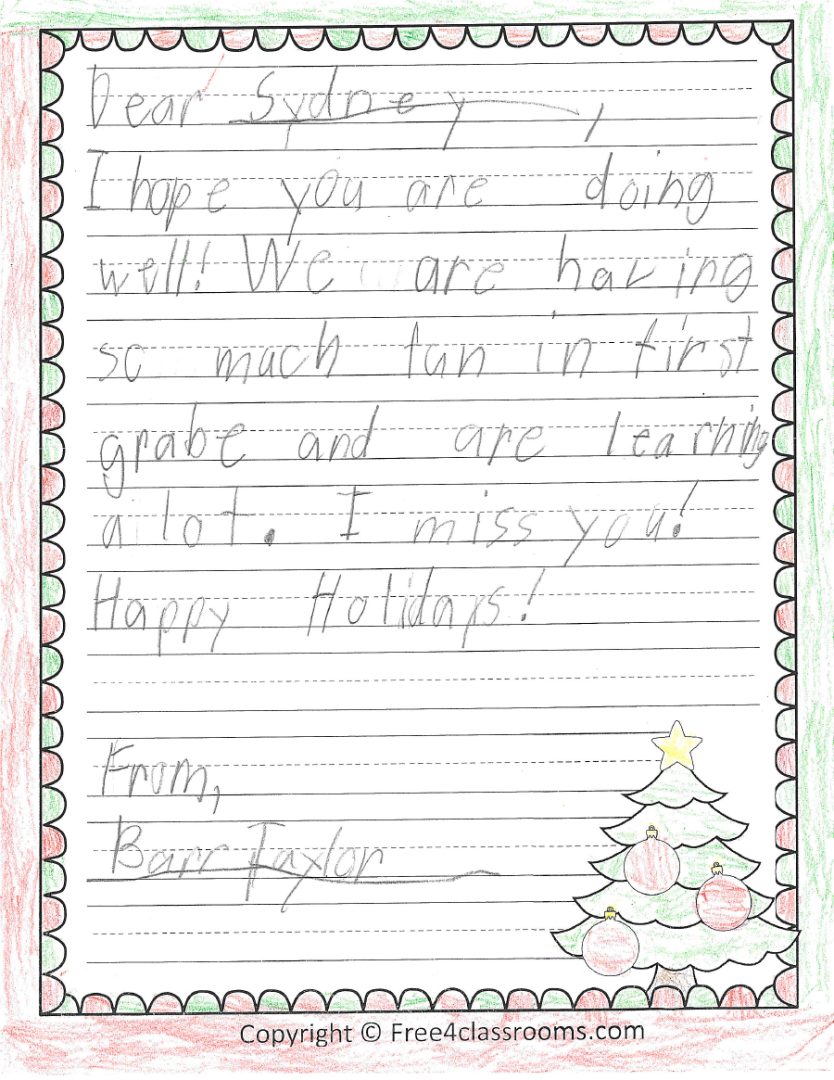 Dear Sydney,
I hope you are doing
well! We are having
so much fun in first
grabe and are learning
a lot. I miss you!
Happy Holidays!
From,
Barr Taylor
Copyright © Free4classrooms.com